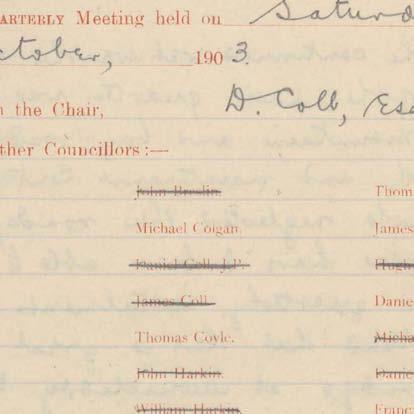 ARTERLY Meeting held on Saturd
ctober, 1903.
n the Chair, D. Coll, Esq
ther Councillors :—
John Breslin. Thom
Michael Colgan. James
Daniel Coll, J.P. Hugh
James Coll. Danie
Thomas Coyle. Micha
John Harkin. Danie
William Harkin. Franc